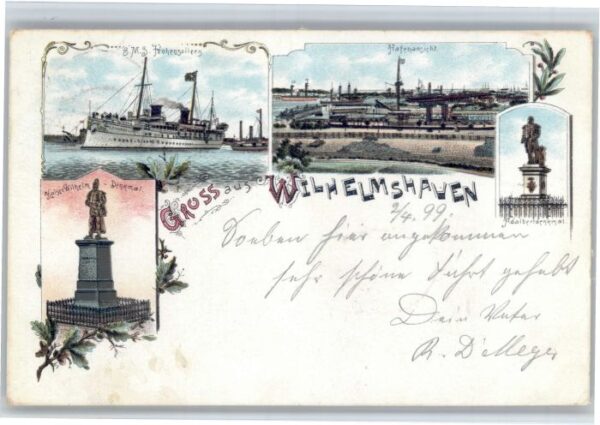 S.M.S. Hohenzollern
Hafenansicht
Kaiser Wilhelm - Denkmal
Adalbertdenkmal
GRUSS aus WILHELMSHAVEN
2/4. 99.
Soeben hier angekommen
sehr schöne Fahrt gehabt
Dein Vater